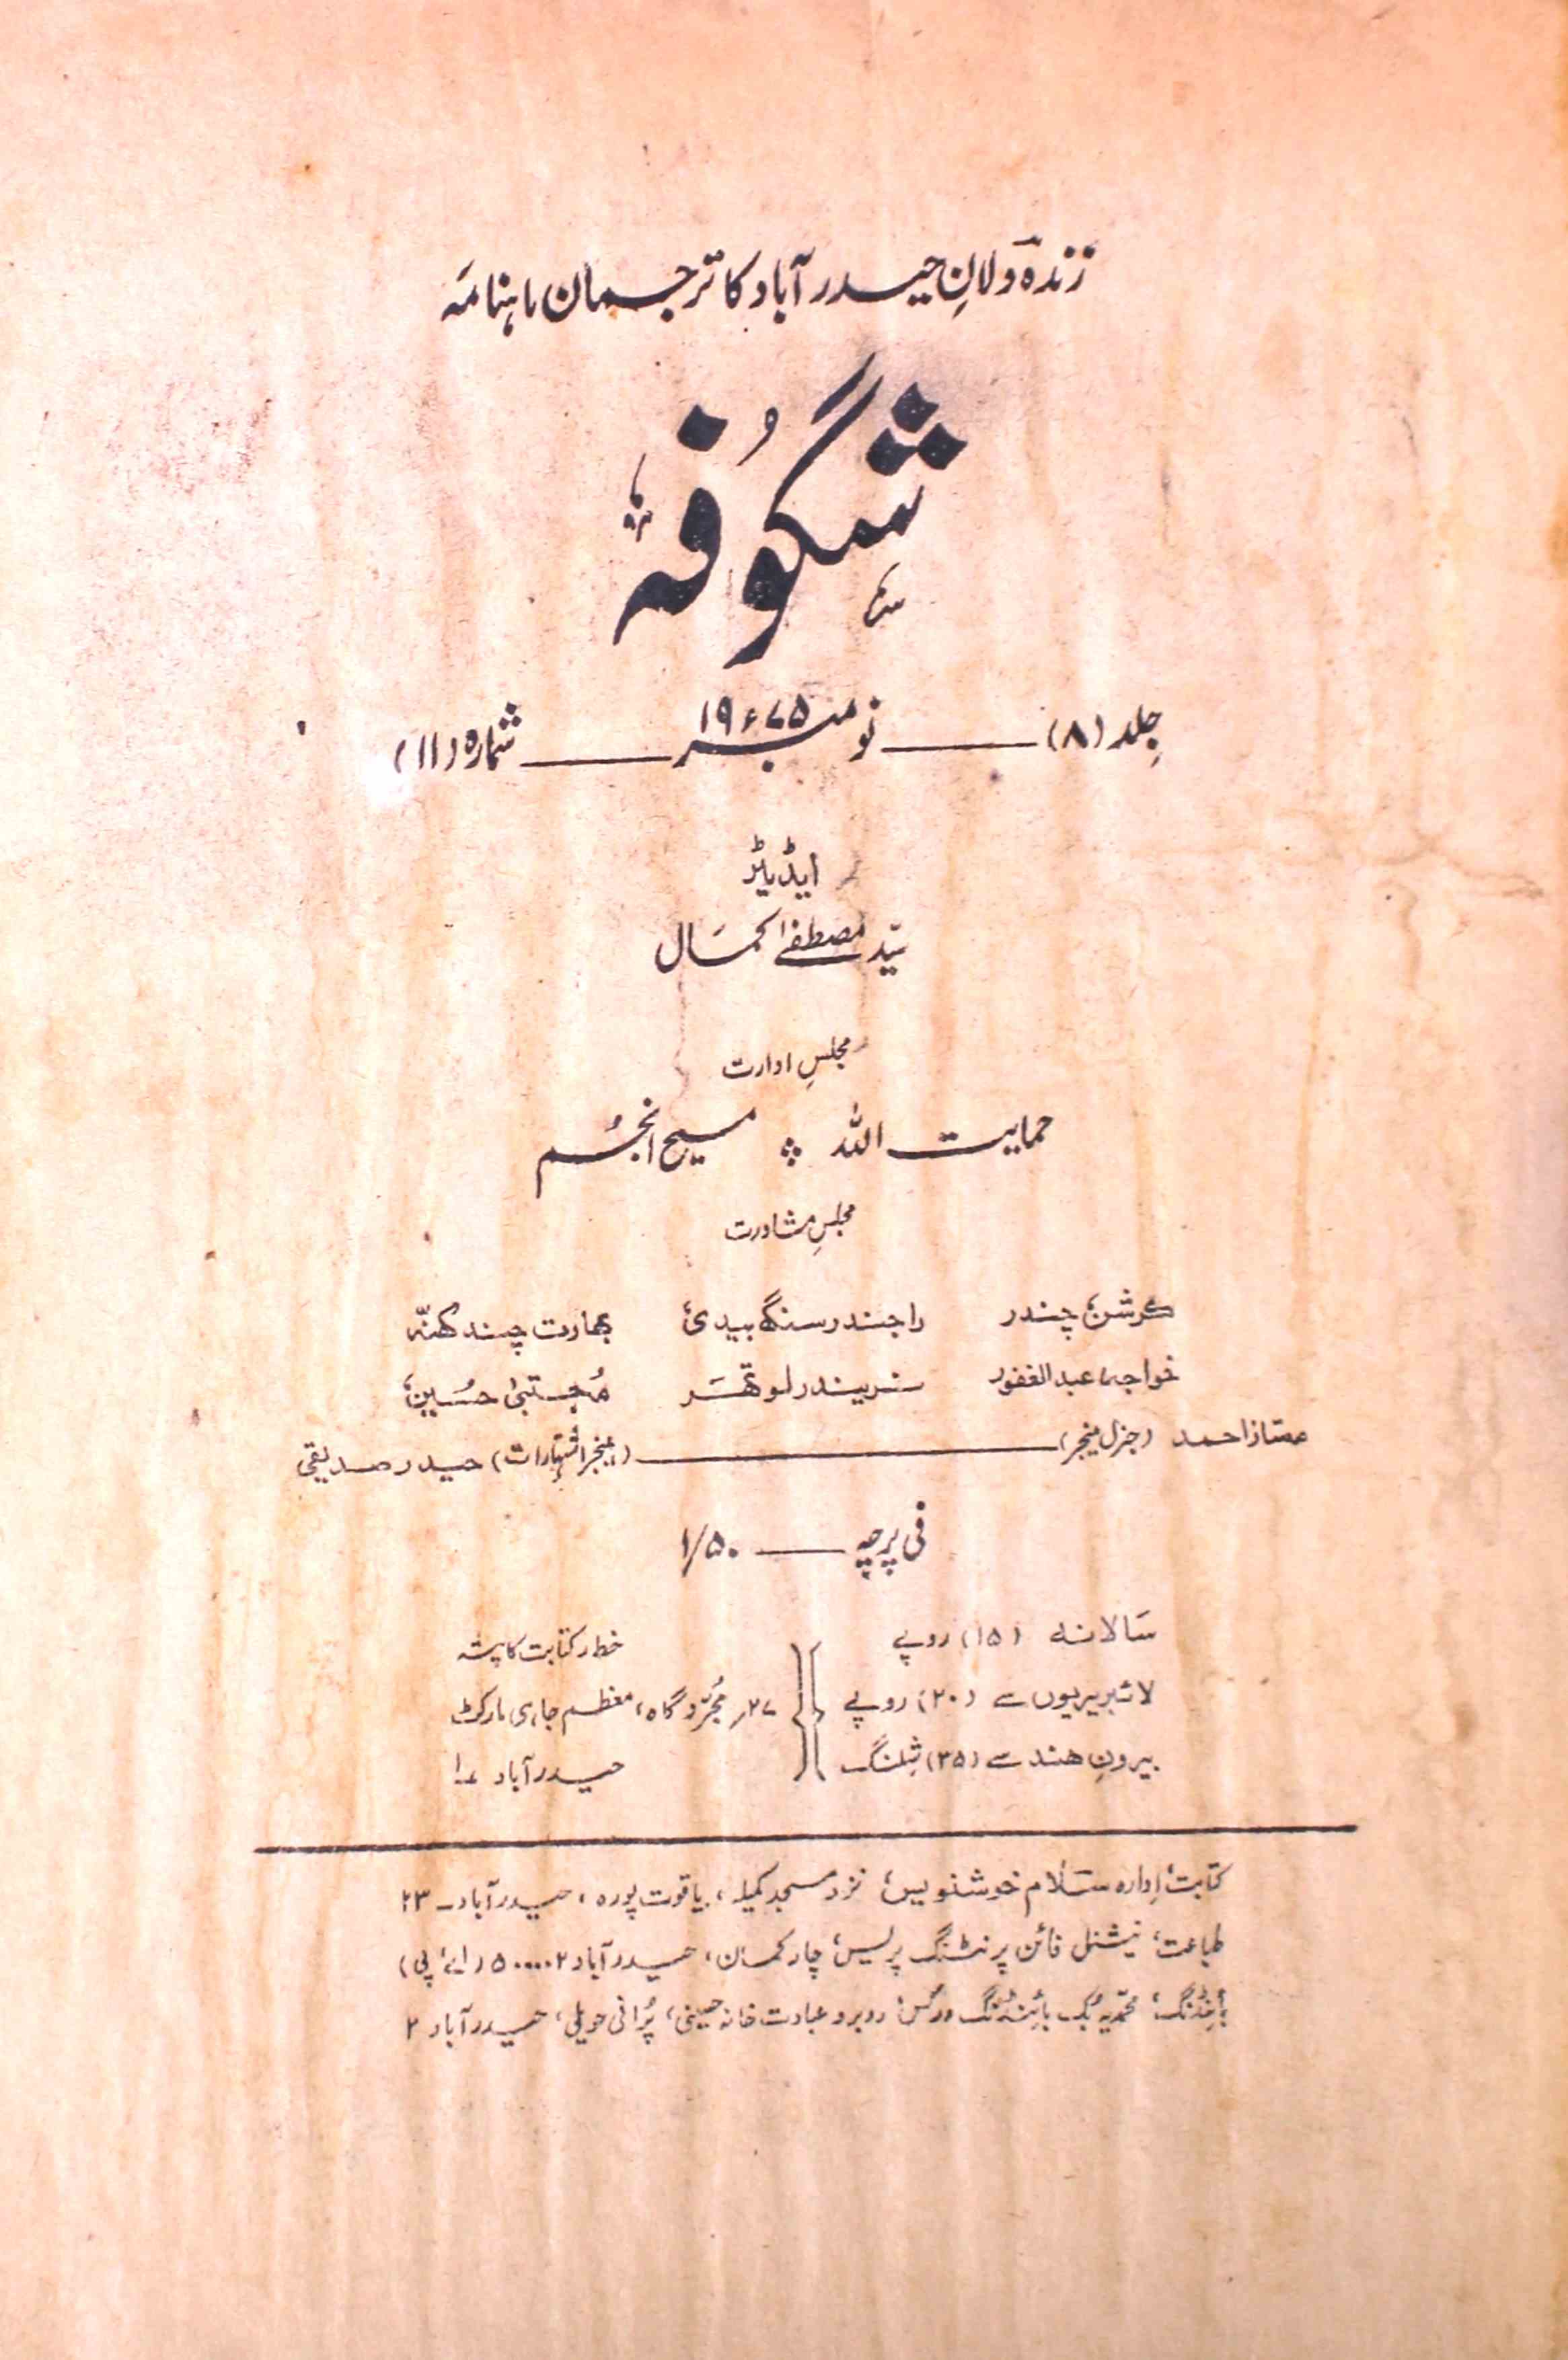 زندہ دلانِ حیدرآباد کا ترجمان ماہنامہ
شگوفہ
جلد (۸) ــــ نومبر ۱۹۷۵ء ــــ شمارہ (۱۱)
ایڈیٹر
سیّد مصطفےٰ کمال
مجلسِ ادارت
حمایت اللہ ❖ مسیح انجُم
مجلسِ مشاورت
کرشن چندر راجندر سنگھ بیدی بھارت چند کھنّہ
خواجہ عبدالغفور نریندر لوتھر مُجتبیٰ حسین
ممتاز احمد (جنرل منیجر) ــــ (منیجر اشتہارات) حیدر صدیقی
فی پرچہ ــــ ۱/۵۰
سالانہ (۱۵) روپے
لائبریریوں سے (۲۰) روپے
بیرونِ ہند سے (۳۵) شِلنگ
خط و کتابت کا پتہ
۲۷، مُجرّد گاہ، معظم جاہی مارکٹ
حیدرآباد ۱
کتابت، اِدارہ سَلام خوشنویس، نزد مسجد کمیلہ، یاقوت پورہ، حیدرآباد ۔ ۲۳
طباعت، نیشنل فائن پرنٹنگ پریس، چار کمان، حیدرآباد ۵۰۰۰۰۲ (اے پی)
بائنڈنگ، محمّدیہ بُک بائنڈنگ ورکس، روبرو عبادت خانہ حسینی، پُرانی حویلی، حیدرآباد ۲